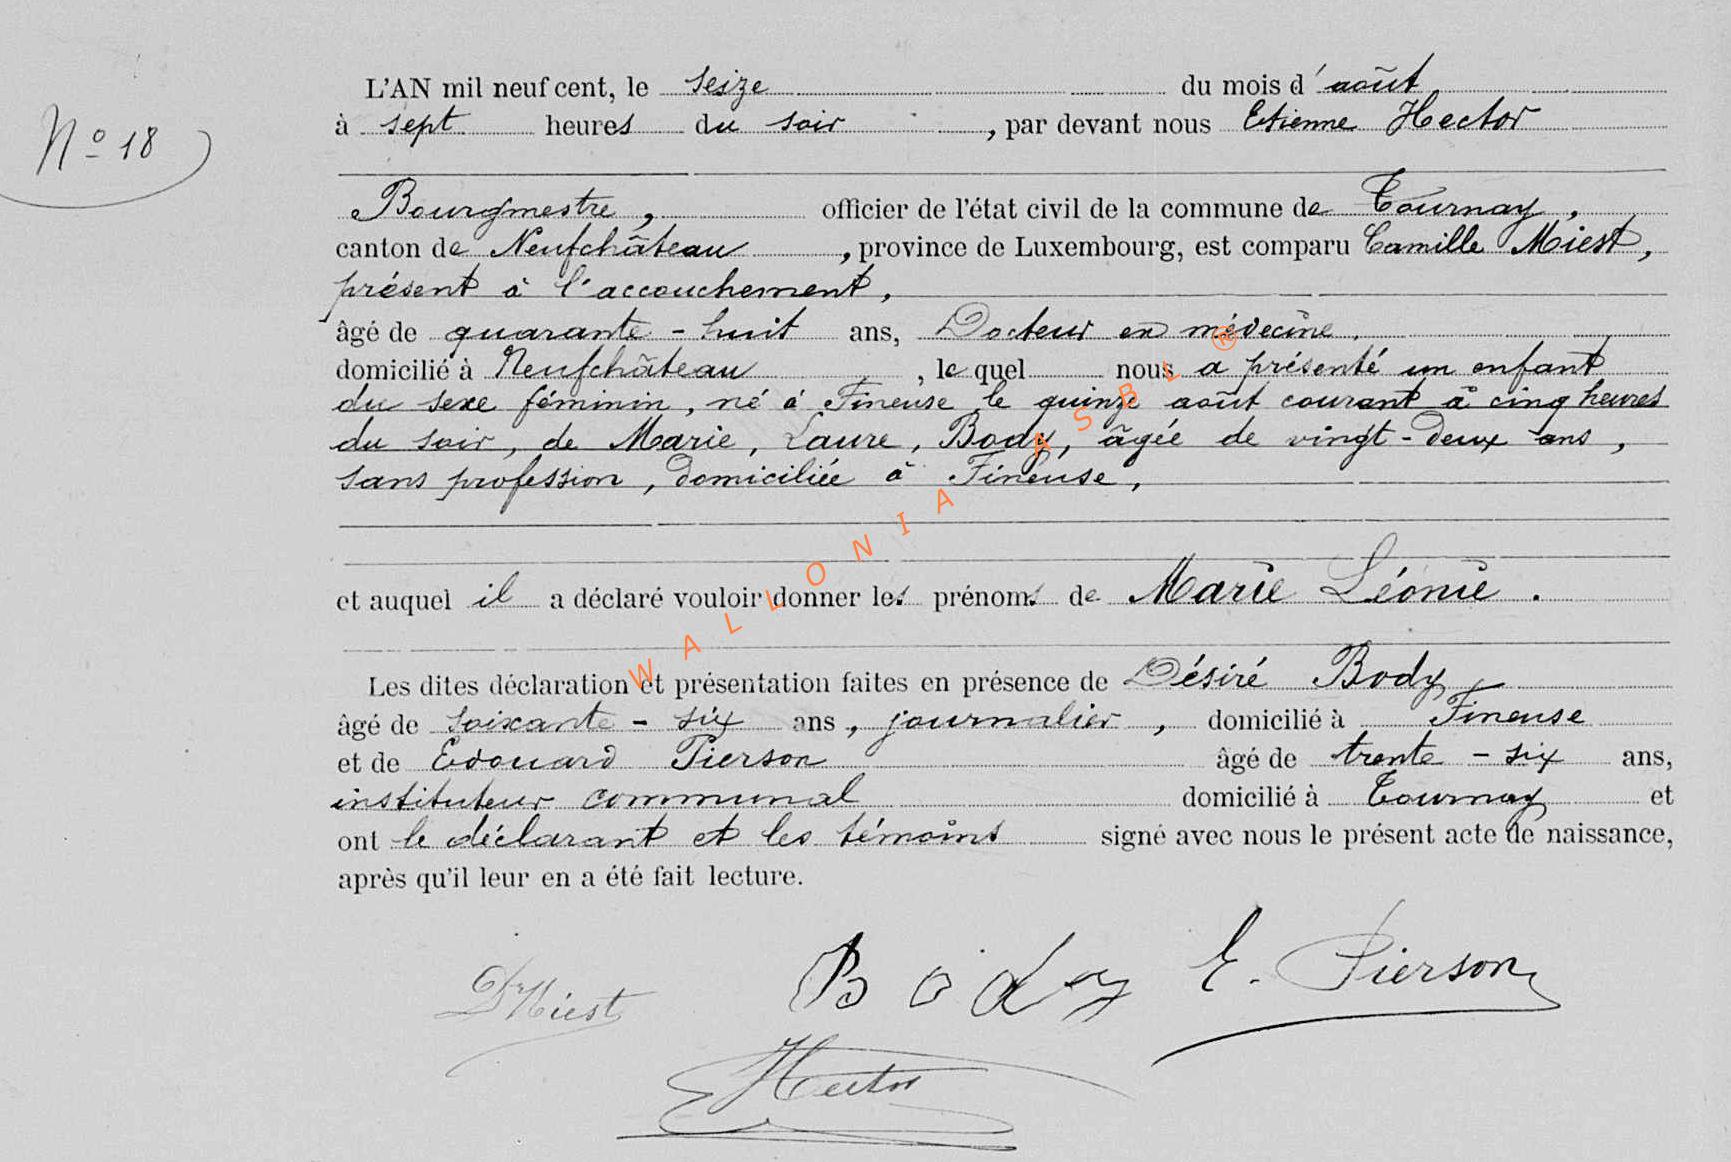 L'AN mil neuf cent, le seize du mois d'août
N° 18
à sept heures du soir, par devant nous Etienne Hector
Bourgmestre, officier de l'état civil de la commune de Tournay,
canton de Neufchâteau, province de Luxembourg, est comparu Camille Miest,
présent à l'accouchement,
âgé de quarante-huit ans, Docteur en médecine,
domicilié à Neufchâteau, lequel nous a présenté un enfant
du sexe féminin, né à Fineuse le quinze août courant à cinq heures
du soir, de Marie, Laure, Body, âgée de vingt-deux ans,
sans profession, domiciliée à Fineuse,
et auquel il a déclaré vouloir donner les prénoms de Marie Léonie.
Les dites déclaration et présentation faites en présence de Désiré Body
âgé de soixante-six ans, journalier, domicilié à Fineuse
et de Edouard Pierson âgé de trente-six ans,
instituteur communal domicilié à Tournay et
ont le déclarant et les témoins signé avec nous le présent acte de naissance,
après qu'il leur en a été fait lecture.
Dr Miest Body E. Pierson
EHector
WALLONIA ASBL ®